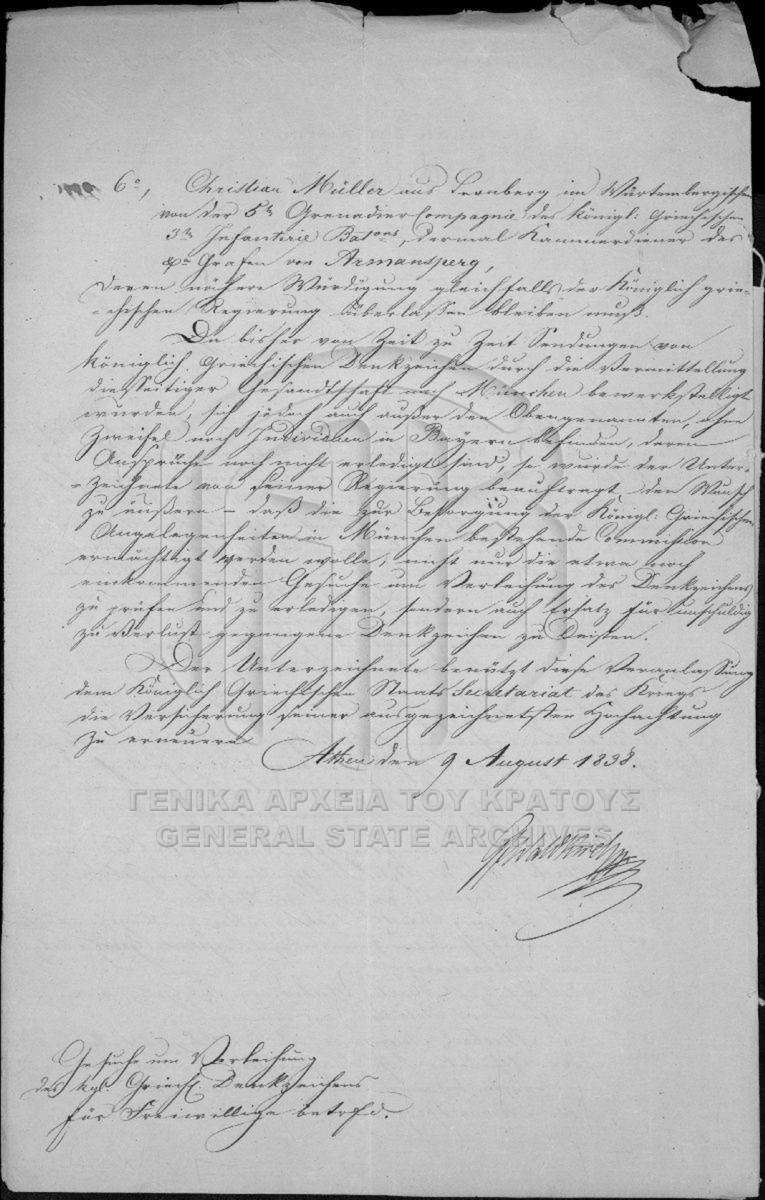 6°, Christian Müller aus Leonberg im Würtembergischen
von der 5ten Grenadier Compagnie des königl: Griechischen
3ten Infanterie Batons, dermal Kammerdiener des
Hrn Grafen von Armansperg,
deren nähere Würdigung gleichfalls der Königlich grie-
-chischen Regierung überlassen bleiben muß.
Da bisher von Zeit zu Zeit Sendungen von
königlich Griechischen Denkzeichen durch die Vermittellung
diesseitiger Gesandtschaft nach München bewerkstelligt
wurden, sich jedoch auch außer den Obengenannten, ohne
Zweifel noch Individuen in Bayern befinden, deren
Ansprüche noch nicht erledigt sind, so wurde der Unter-
-zeichnete von seiner Regierung beauftragt den Wunsch
zu äußern – daß die zur Besorgung der Königl: Griechischen
Angelegenheiten in München bestehende Commission
ermächtigt werden wolle, nicht nur die etwa noch
einkommenden Gesuche um Verleihung des Denkzeichens
zu prüfen und zu erledigen, sondern auch Ersatz für unschuldig
zu Verlust gegangene Denkzeichen zu leisten.
Der Unterzeichnete benützt diese Veranlassung
dem Königlich Griechischen Staats Secretariat des Kriegs
die Versicherung seiner ausgezeichnetsten Hochachtung
zu erneuern.
Athen den 9 August 1838.
ΓΕΝΙΚΑ ΑΡΧΕΙΑ ΤΟΥ ΚΡΑΤΟΥΣ
GENERAL STATE ARCHIVES
Gesuche um Verleihung
des kgl. Griech. Denkzeichens
für Freiwillige betrefd.